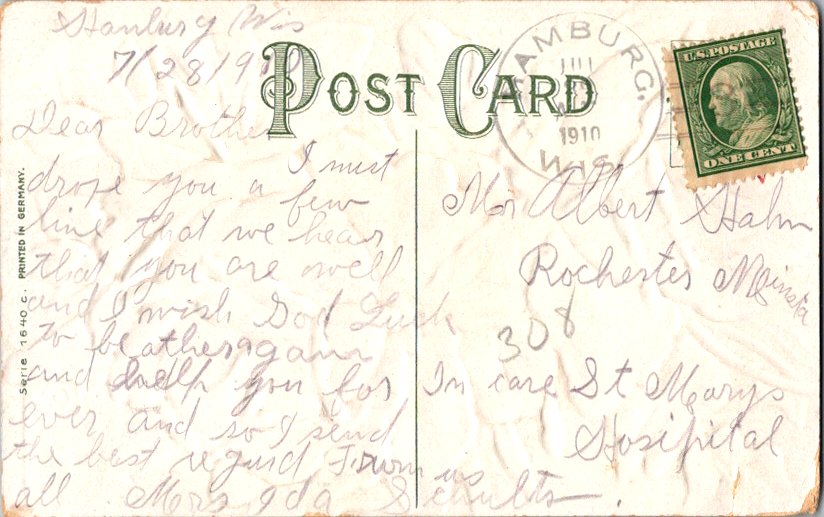 Hamburg Wis
7/28/1910
POST CARD
HAMBURG,
1910
WIS.
U.S. POSTAGE
ONE CENT
Dear Brother
I must
drope you a few
line that we hear
that you are well
and I wish God Luck
to be
and help you for
ever and so I send
the best regurd From us
all Mrs Ida Schults.
Mr Albert Hahn
Rochester Meinsta
308
In care St Marys
Hosipital
Serie 1640 C. PRINTED IN GERMANY.